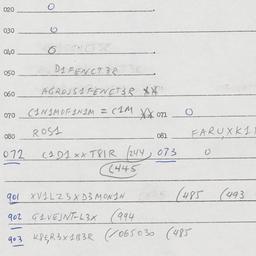 020 0
030 0
040 0
050 D1FENCT3R
060 AGROJS1FENCT3R XX
070 C1N1M0F1N1M = C1M XX 071 0
080 R0S1 081 FARUXK1
072 C1D1 xx T81R /244, 073 0
(C445
901 XV1LZ5XD3M0N1N (485 (493
902 G1VEJNT-L3X (994
903 (/065030 (485